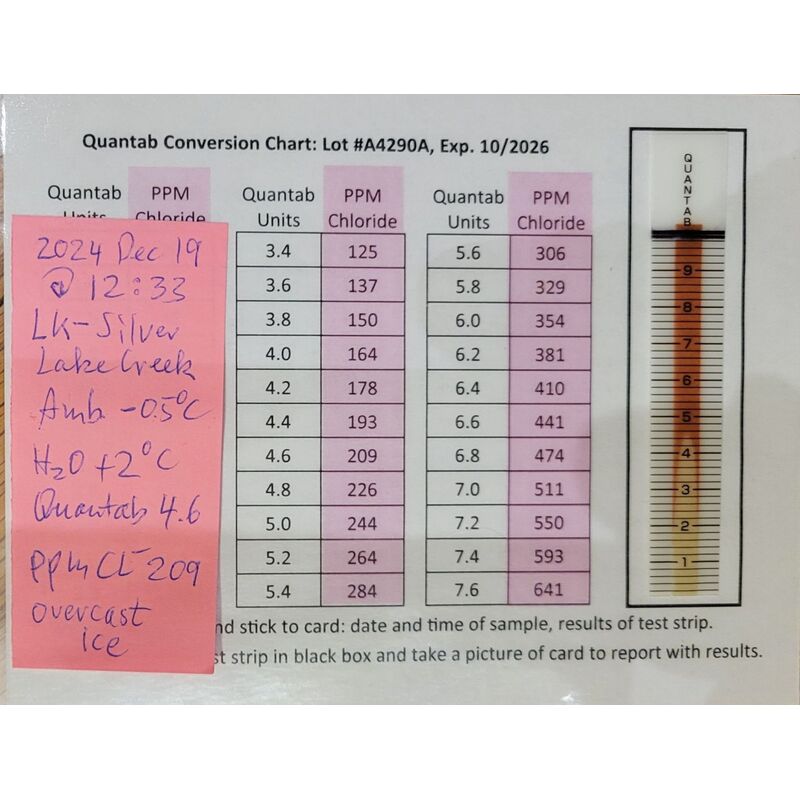 Quantab Conversion Chart: Lot #A4290A, Exp. 10/2026
Quantab PPM
Units Chloride
2024 Dec 19
@ 12:33
LK-Silver
Lake Creek
Amb -0.5°C
H2O +2°C
Quantab 4.6
ppm CL- 209
overcast
ice
Quantab PPM
Units Chloride
3.4 125
3.6 137
3.8 150
4.0 164
4.2 178
4.4 193
4.6 209
4.8 226
5.0 244
5.2 264
5.4 284
Quantab PPM
Units Chloride
5.6 306
5.8 329
6.0 354
6.2 381
6.4 410
6.6 441
6.8 474
7.0 511
7.2 550
7.4 593
7.6 641
QUANTAB
9
8
7
6
5
4
3
2
1
stick to card: date and time of sample, results of test strip.
strip in black box and take a picture of card to report with results.